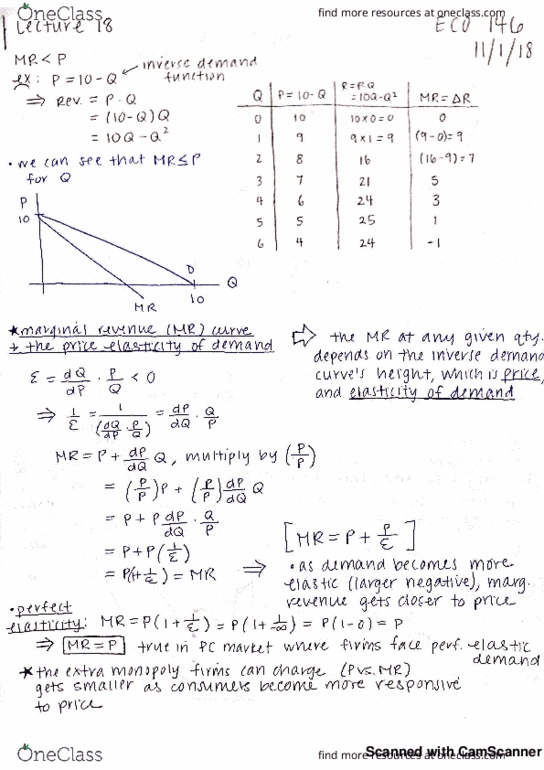 OneClass
find more resources at oneclass.com
Lecture 18
ECO 146
11/1/18
MR < P
ex: P = 10 - Q ← inverse demand function
⇒ Rev. = P · Q
= (10-Q)Q
= 10Q - Q²
• we can see that MR ≤ P
for Q
Q | P = 10-Q | R = P·Q = 10Q-Q² | MR = ΔR
0 | 10 | 10×0=0 | 0
1 | 9 | 9×1=9 | (9-0)=9
2 | 8 | 16 | (16-9)=7
3 | 7 | 21 | 5
4 | 6 | 24 | 3
5 | 5 | 25 | 1
6 | 4 | 24 | -1
P
10
D
Q
10
MR
★ marginal revenue (MR) curve
+ the price elasticity of demand
ε = dQ/dP · P/Q < 0
⇒ 1/ε = 1/(dQ/dP · P/Q) = dP/dQ · Q/P
MR = P + dP/dQ Q, multiply by (P/P)
= (P/P)P + (P/P) dP/dQ Q
= P + P dP/dQ · Q/P
= P + P(1/ε)
= P(1+1/ε) = MR ⇒
⇨ the MR at any given qty.
depends on the inverse demand
curve's height, which is price,
and elasticity of demand
[MR = P + P/ε]
• as demand becomes more
elastic (larger negative), marg.
revenue gets closer to price
• perfect
elasticity: MR = P(1 + 1/ε) = P(1 + 1/-∞) = P(1-0) = P
⇒ MR = P true in PC market where firms face perf. elastic
demand
★ the extra monopoly firms can charge (P vs. MR)
gets smaller as consumers become more responsive
to price
OneClass
find more resources at oneclass.com
Scanned with CamScanner